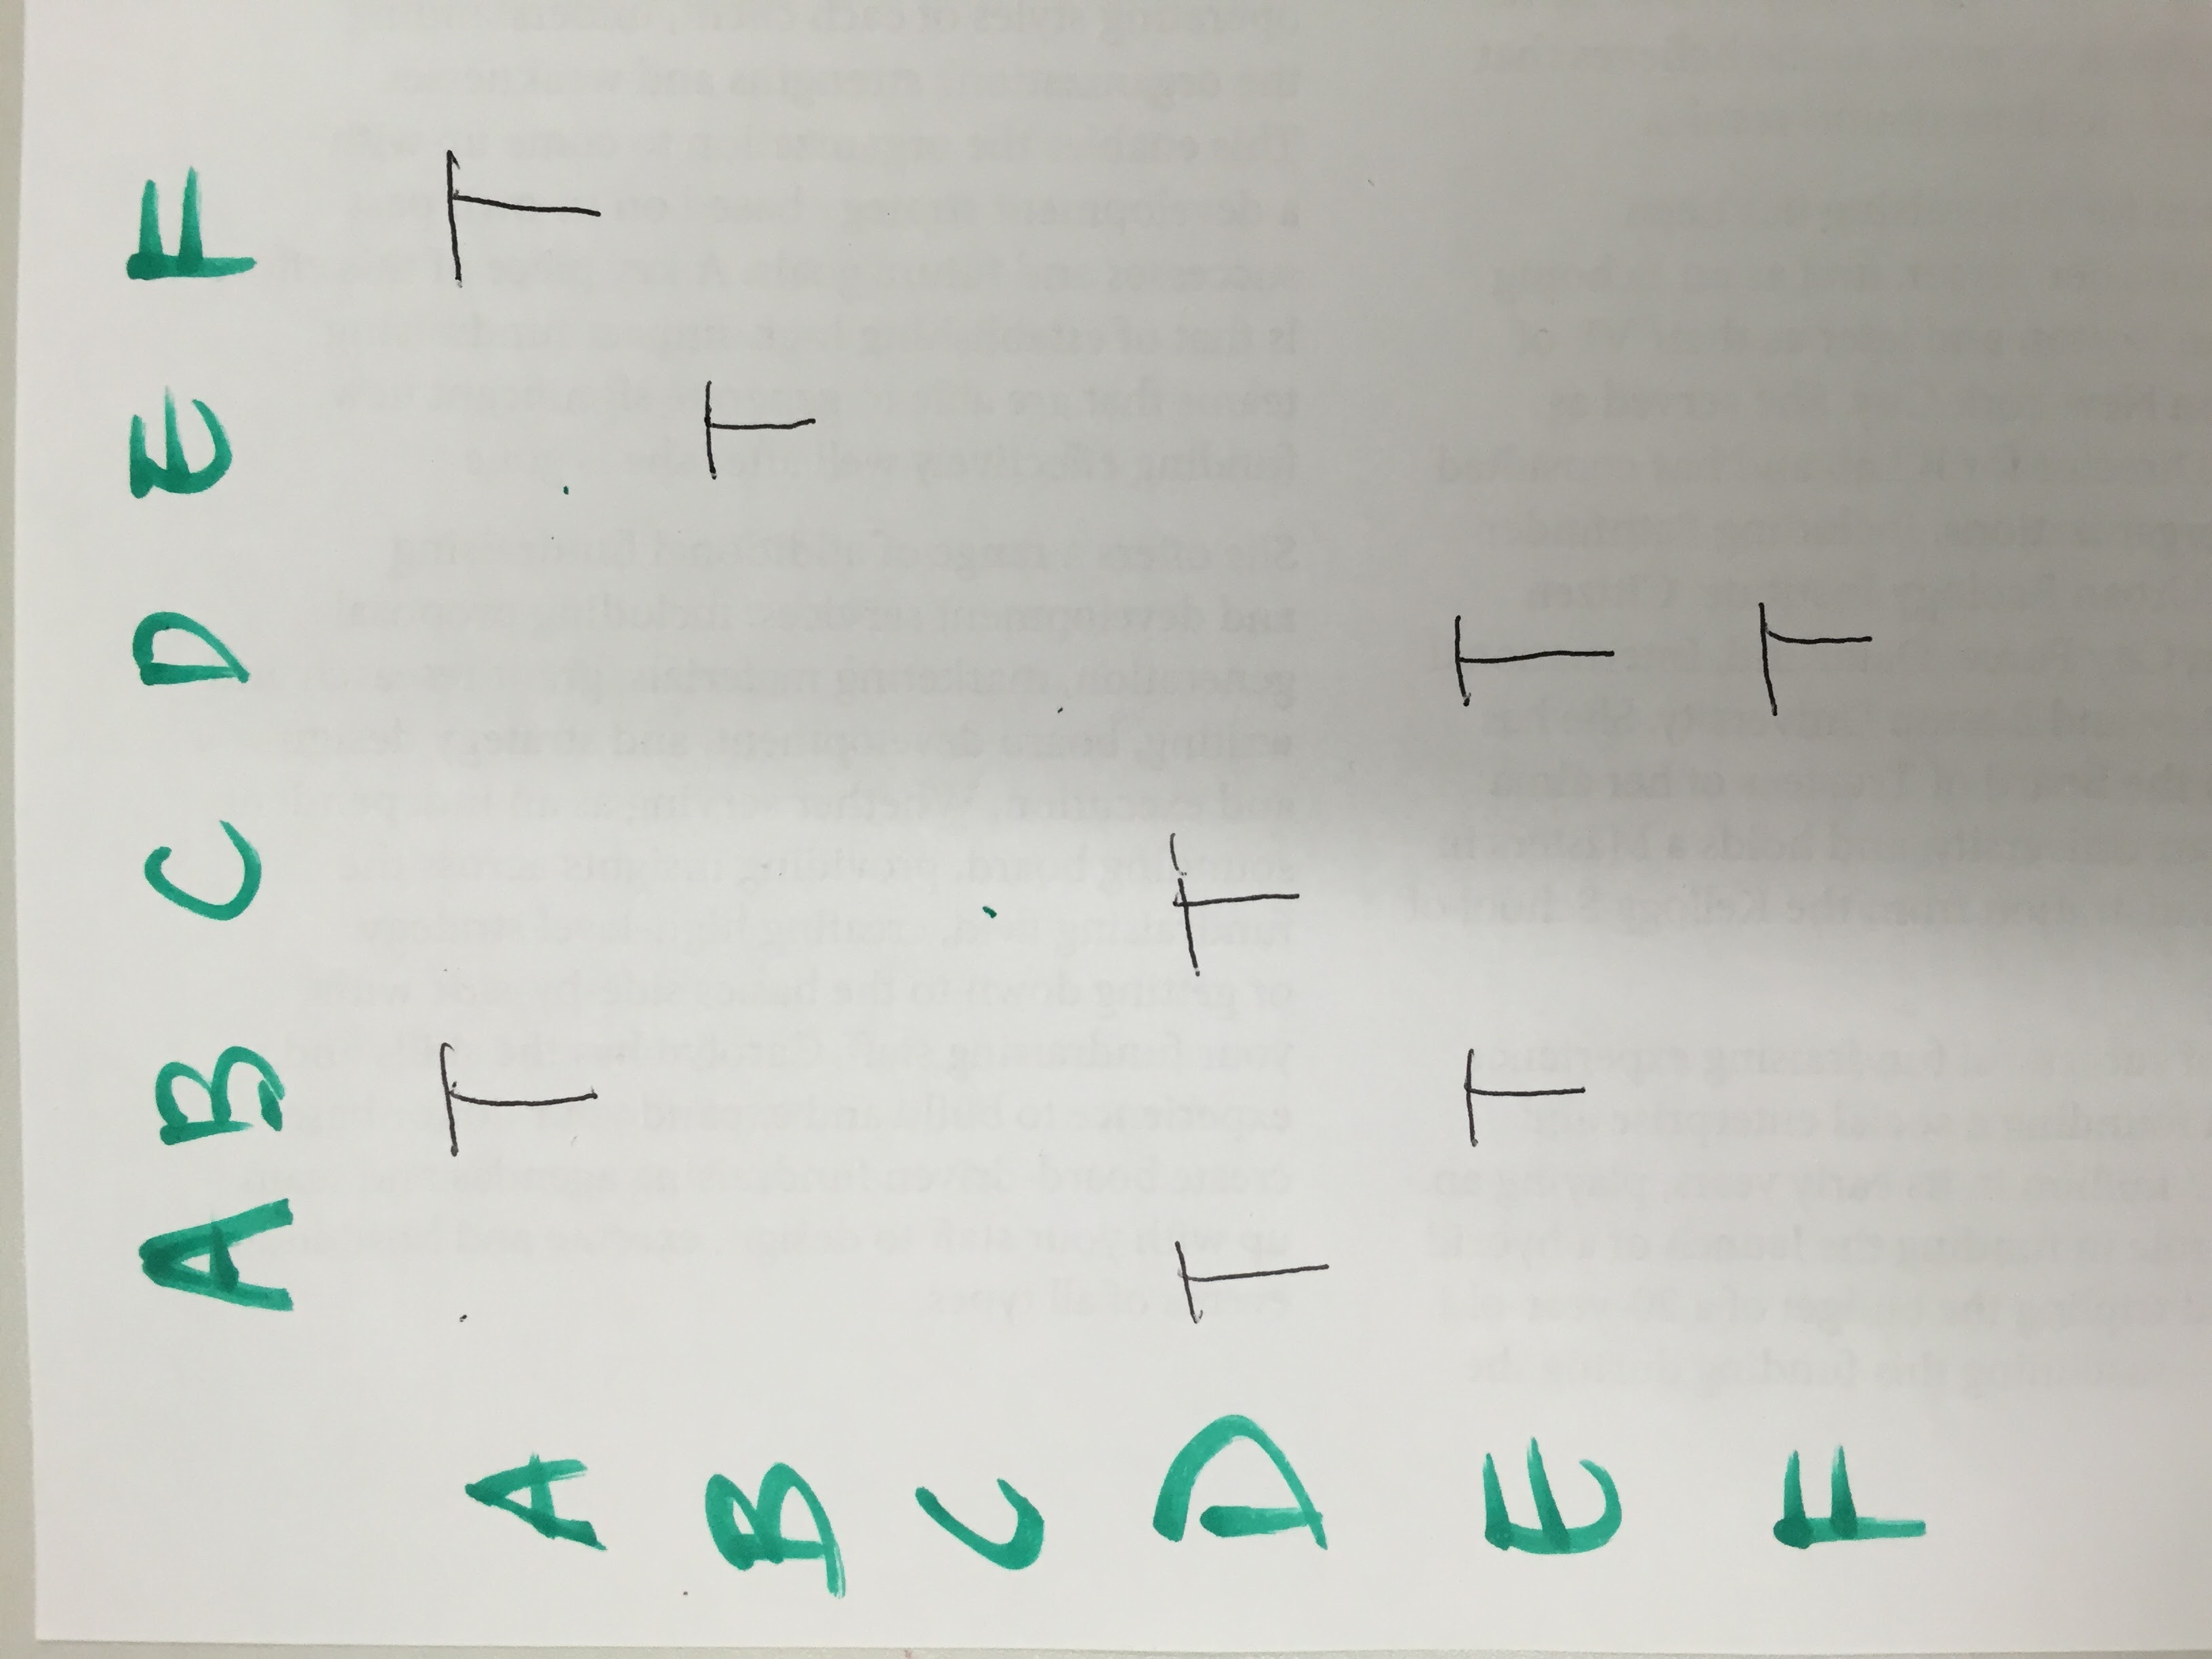 A B C D E F
A T T
B T
C
D T T
E T T
F T